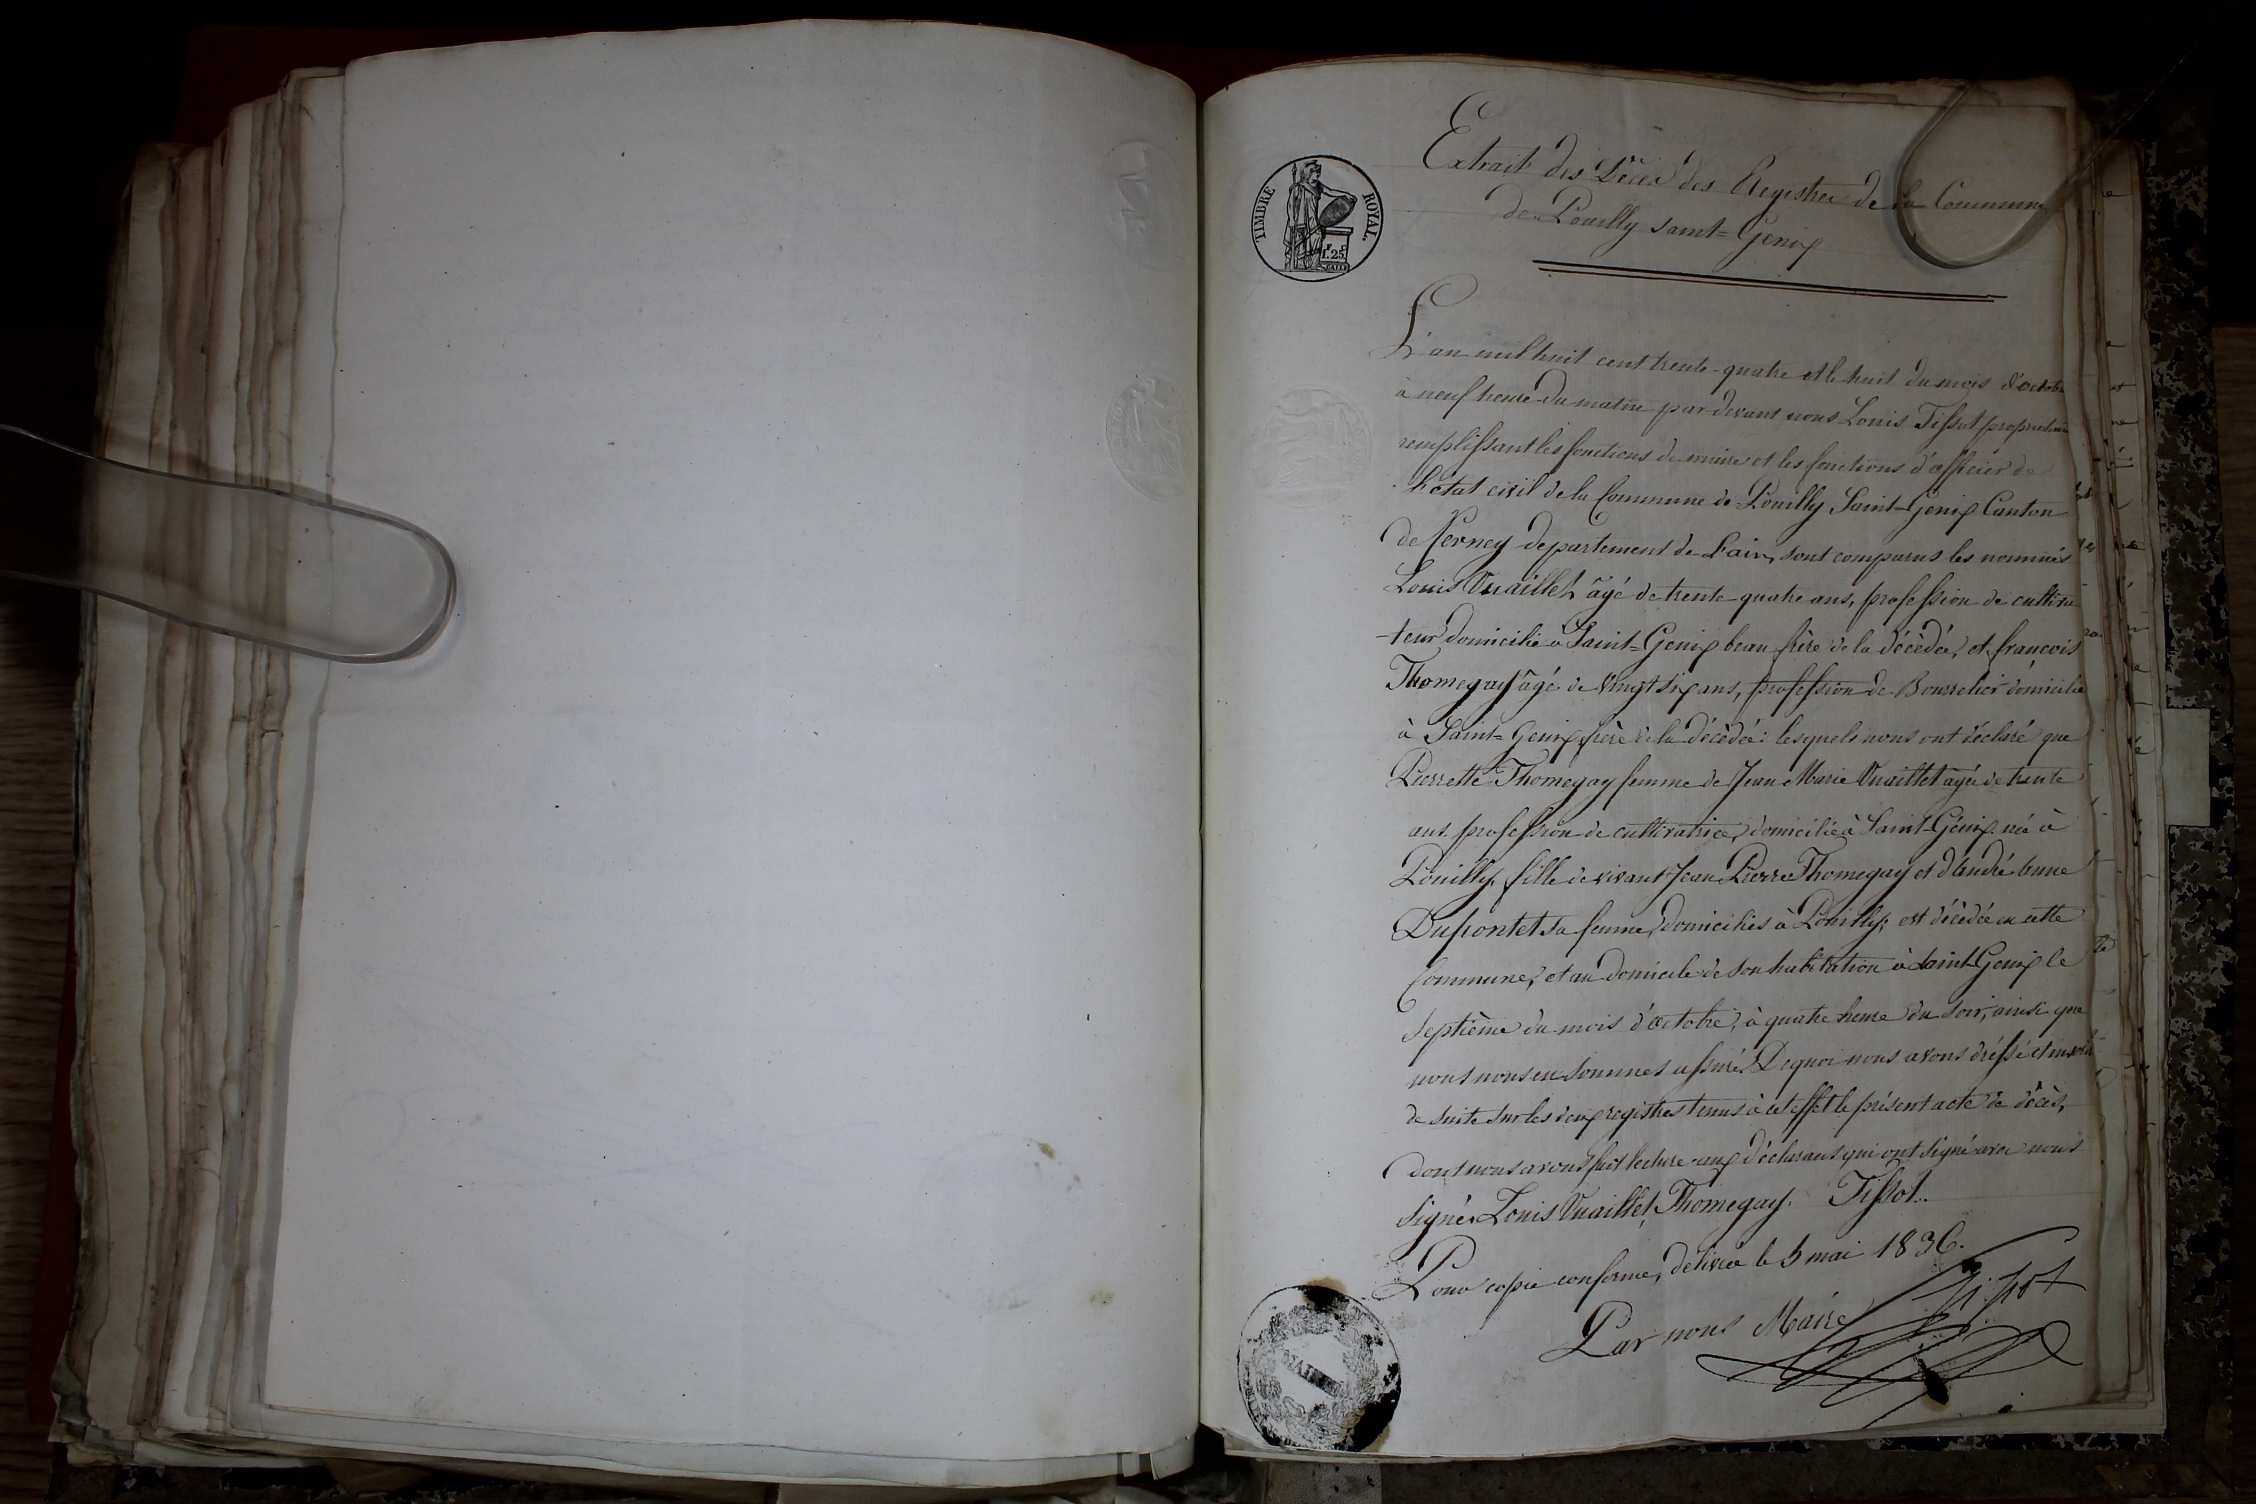 TIMBRE ROYAL.
1.25
Extrait des Décès des Registres de la Commune
de Pouilly saint=Genix
L'an mil huit cent trente-quatre et le huit du mois d'octobre
à neuf heure du matin par devant nous Louis Tissot propriétaire
remplissant les fonctions de maire et les fonctions d'officier de
l'état civil de la Commune de Pouilly Saint-Genix Canton
de Ferney departement de L'ain, sont comparus les nommés
Louis Vuaillet âgé de trente quatre ans, profession de cultiva
-teur domicilié à Saint=Genix beau frère de la décédée, et françois
Thomegay âgé de vingt six ans, profession de Bourrelier domicilié
à Saint=Genix frère de la décédée: lesquels nous ont déclaré que
Pierrette Thomegay femme de Jean Marie Vuaillet agée de trente
ans profession de cultivatrice, domiciliée à Saint-Génix née à
Pouilly, fille de vivant Jean Pierre Thomegay et d'andré anne
Dupontet sa femme, domiciliés à Pouilly; est décédée en cette
Commune, et au domicile de son habitation à Saint-Genix le
septième du mois d'octobre, à quatre heure du soir, ainsi que
nous nous en sommes assuré. De quoi nous avons dréssé et
de suite sur les deux registres tenus à cet effet le présent acte de décès,
dont nous avons fait lecture aux déclarans qui ont signé avec nous
signés Louis Vuaillet, Thomegay. Tissot.
Pour copie conforme, délivrée le 5 mai 1836.
Par nous Maire Tissot
MAIRIE